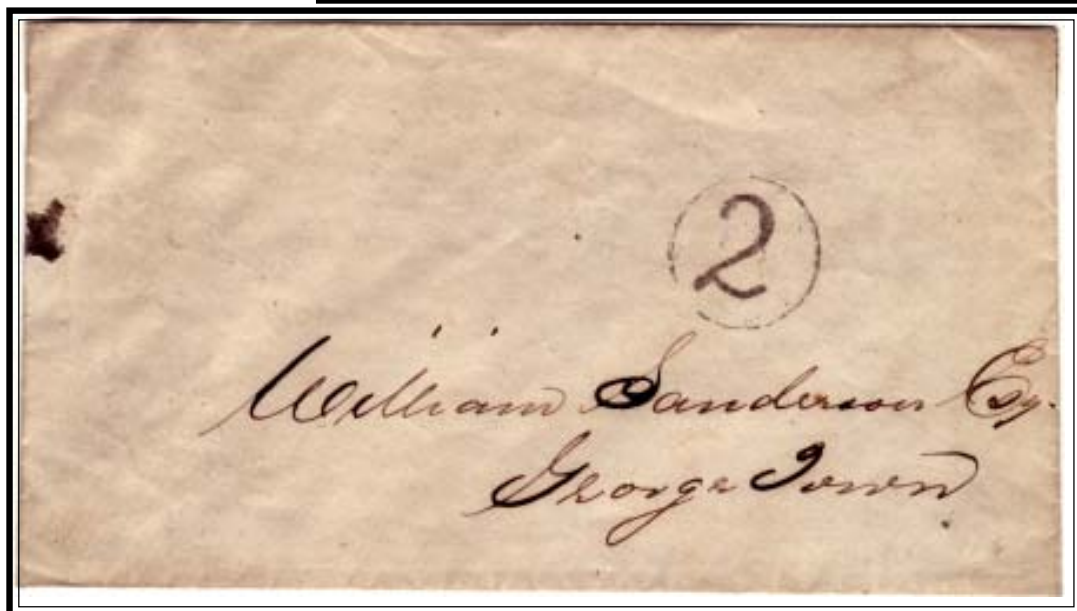 2
William Sanderson Esq.
George Town